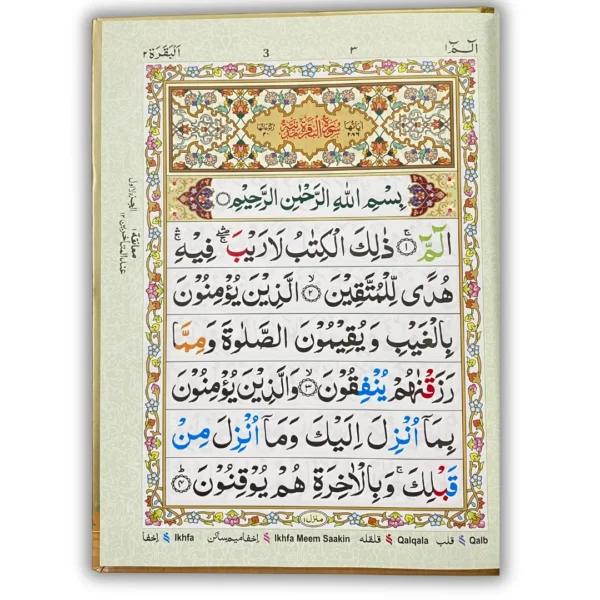 الٓمّٓ ١
٣
3
اَلْبَقَرَة ٢
اٰیَاتُهَا ٢٨٦
سُوْرَةُ الْبَقَرَةِ مَدَنِيَّةٌ
رُكُوْعَاتُهَا ٤٠
بِسْمِ اللّٰهِ الرَّحْمٰنِ الرَّحِيْمِ
الٓمّٓ ۚ ۝١ ذٰلِكَ الْكِتٰبُ لَا رَيْبَ ۛۖ فِيْهِ ۛۚ
هُدًى لِّلْمُتَّقِيْنَ ۙ ۝٢ الَّذِيْنَ يُؤْمِنُوْنَ
بِالْغَيْبِ وَيُقِيْمُوْنَ الصَّلٰوةَ وَمِمَّا
رَزَقْنٰهُمْ يُنْفِقُوْنَ ۙ ۝٣ وَالَّذِيْنَ يُؤْمِنُوْنَ
بِمَآ اُنْزِلَ اِلَيْكَ وَمَآ اُنْزِلَ مِنْ
قَبْلِكَ ۚ وَبِالْاٰخِرَةِ هُمْ يُوْقِنُوْنَ ؕ ۝٤
منزل ١
معانقة ١
عند المتأخرين ١٢
اخفا Ikhfa اخفا میم ساکن Ikhfa Meem Saakin قلقله Qalqala قلب Qalb